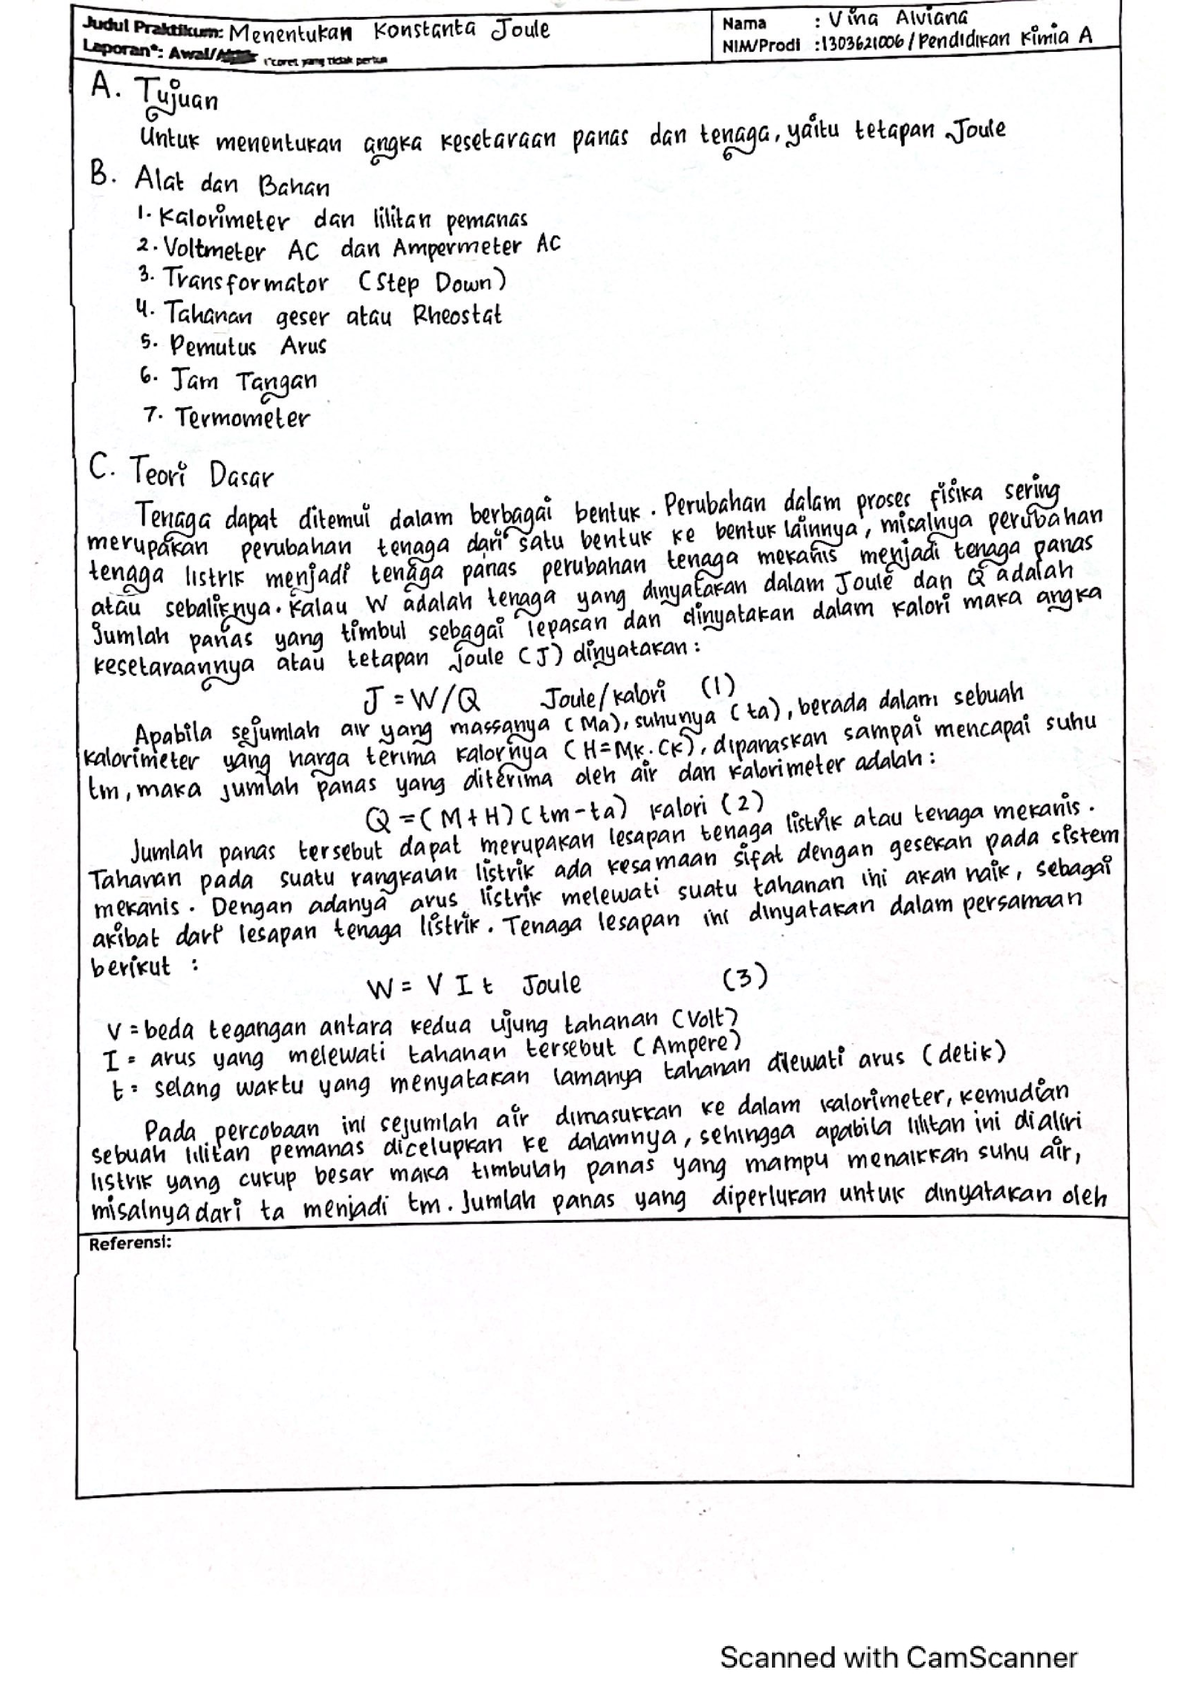 Judul Praktikum: Menentukan Konstanta Joule
Laporan*: Awal/
(*coret yang tidak perlu
Nama : Vina Alviana
NIM/Prodi : 1303621006 / Pendidikan Kimia A
A. Tujuan
Untuk menentukan angka kesetaraan panas dan tenaga, yaitu tetapan Joule
B. Alat dan Bahan
1. Kalorimeter dan lilitan pemanas
2. Voltmeter AC dan Ampermeter AC
3. Transformator (Step Down)
4. Tahanan geser atau Rheostat
5. Pemutus Arus
6. Jam Tangan
7. Termometer
C. Teori Dasar
Tenaga dapat ditemui dalam berbagai bentuk. Perubahan dalam proses fisika sering
merupakan perubahan tenaga dari satu bentuk ke bentuk lainnya, misalnya perubahan
tenaga listrik menjadi tenaga panas perubahan tenaga mekanis menjadi tenaga panas
atau sebaliknya. Kalau W adalah tenaga yang dinyatakan dalam Joule dan Q adalah
Jumlah panas yang timbul sebagai lepasan dan dinyatakan dalam kalori maka angka
kesetaraannya atau tetapan joule (J) dinyatakan :
J = W/Q Joule/kalori (1)
Apabila sejumlah air yang massanya (Ma), suhunya (ta), berada dalam sebuah
kalorimeter yang harga terima kalornya (H=Mk.Ck), dipanaskan sampai mencapai suhu
tm, maka jumlah panas yang diterima oleh air dan kalorimeter adalah :
Q = (M+H)(tm-ta) kalori (2)
Jumlah panas tersebut dapat merupakan lesapan tenaga listrik atau tenaga mekanis.
Tahanan pada suatu rangkaian listrik ada kesamaan sifat dengan gesekan pada sistem
mekanis. Dengan adanya arus listrik melewati suatu tahanan ini akan naik, sebagai
akibat dari lesapan tenaga listrik. Tenaga lesapan ini dinyatakan dalam persamaan
berikut :
W = V I t Joule (3)
V = beda tegangan antara kedua ujung tahanan (Volt)
I = arus yang melewati tahanan tersebut (Ampere)
t = selang waktu yang menyatakan lamanya tahanan dilewati arus (detik)
Pada percobaan ini sejumlah air dimasukkan ke dalam kalorimeter, kemudian
sebuah lilitan pemanas dicelupkan ke dalamnya, sehingga apabila lilitan ini dialiri
listrik yang cukup besar maka timbulah panas yang mampu menaikkan suhu air,
misalnya dari ta menjadi tm. Jumlah panas yang diperlukan untuk dinyatakan oleh
Referensi:
Scanned with CamScanner